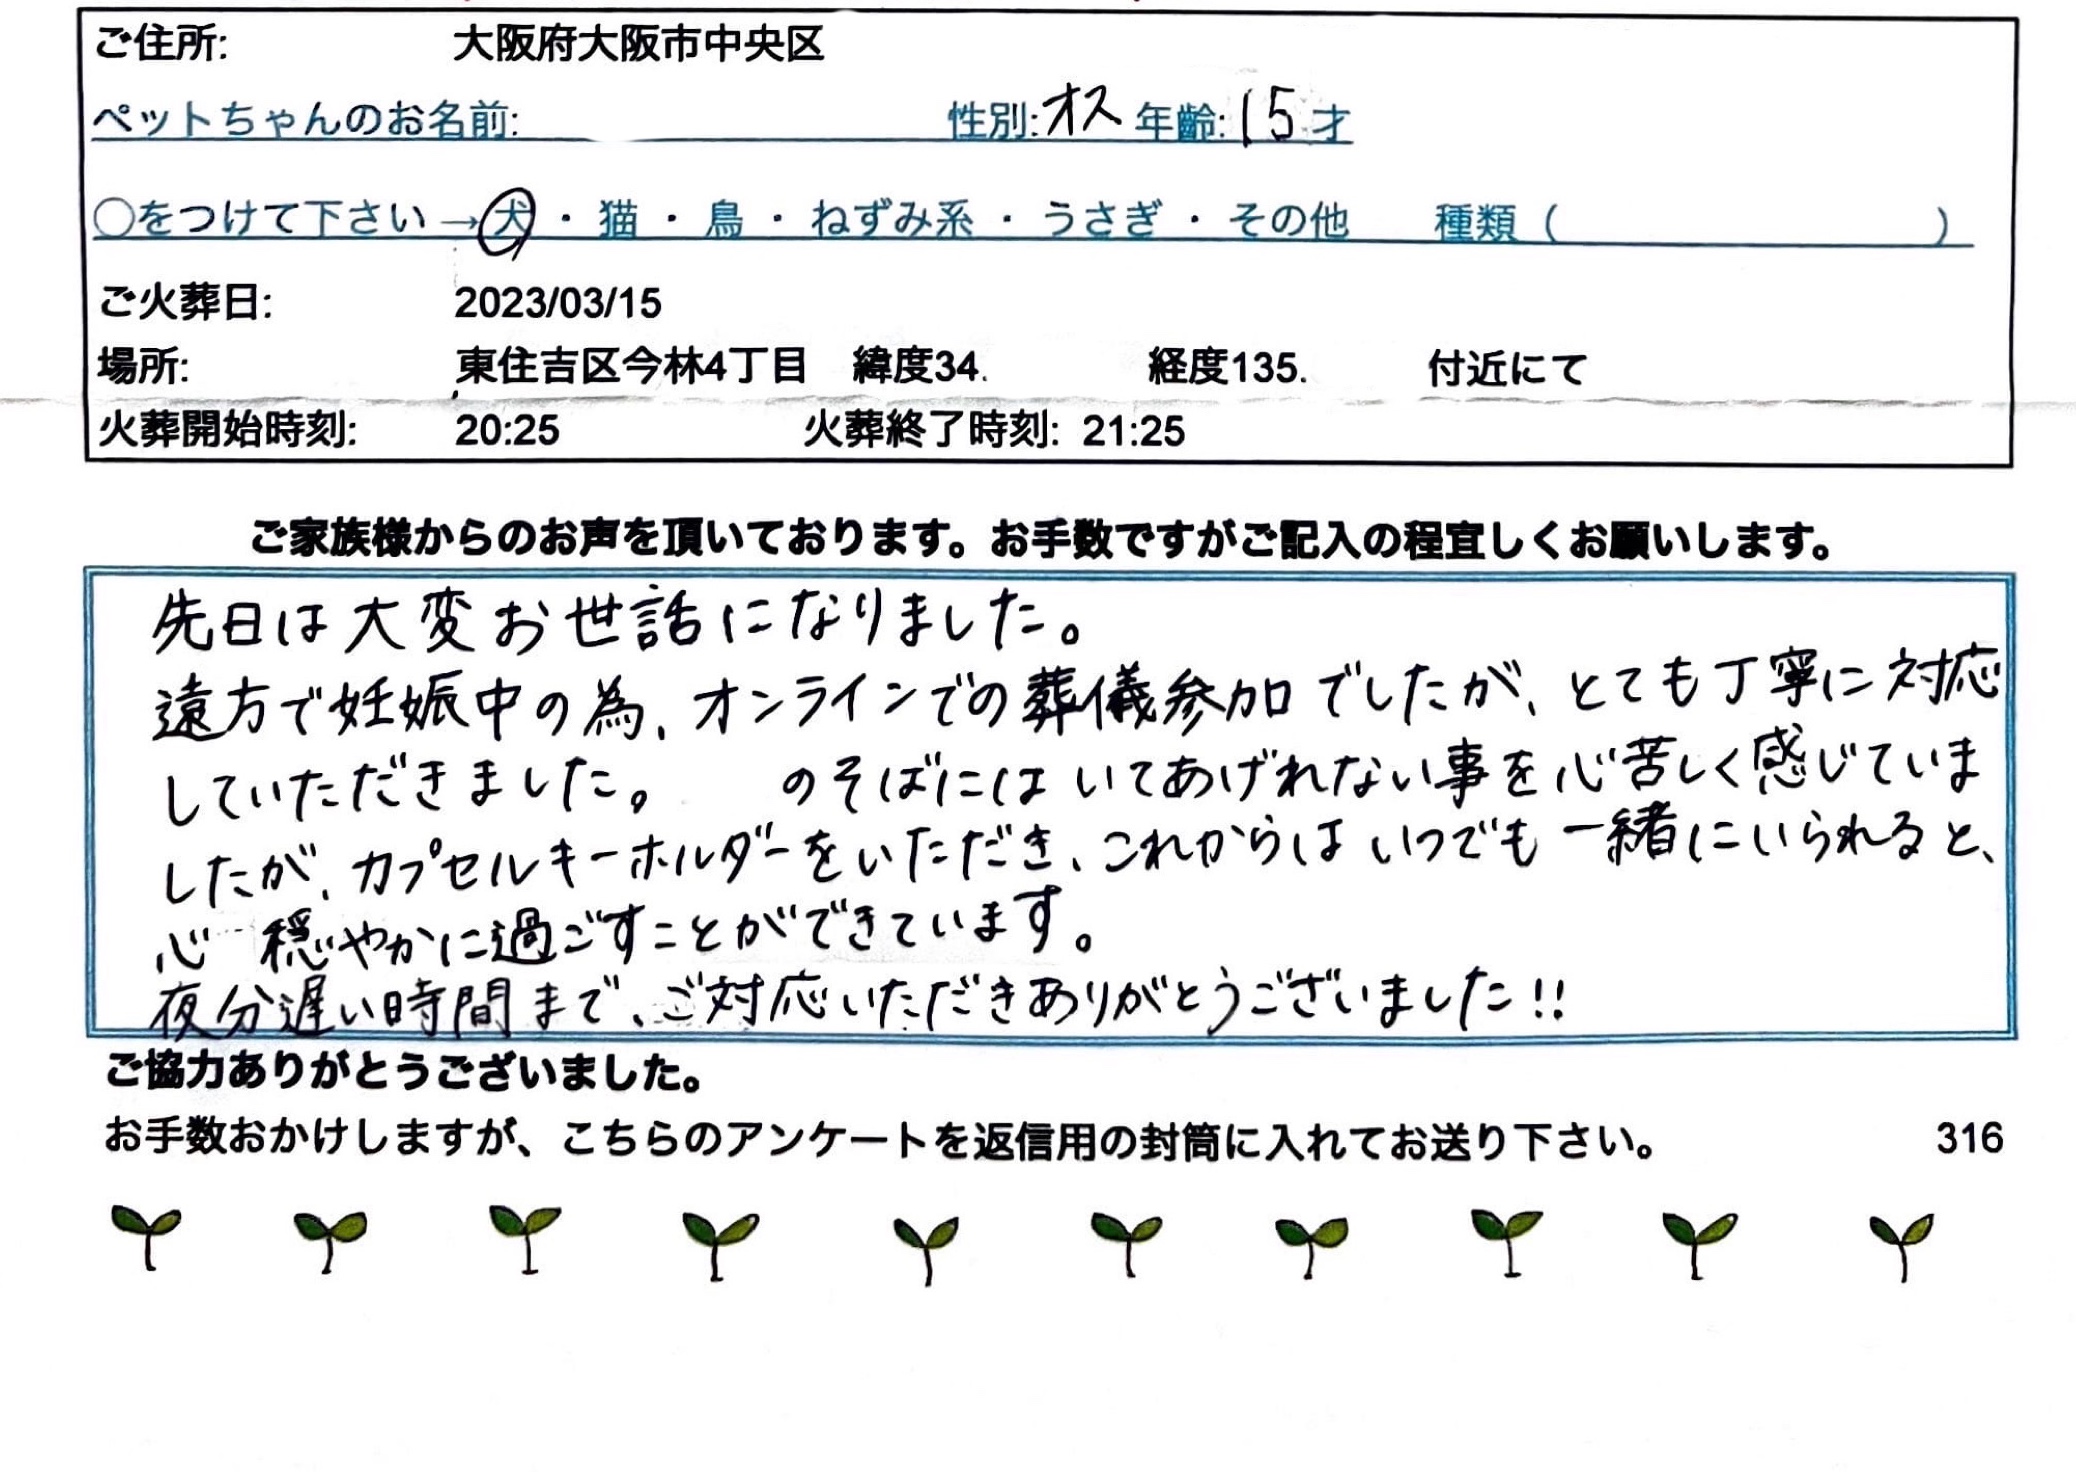 ご住所: 大阪府大阪市中央区
ペットちゃんのお名前: 性別:オス 年齢:15才
○をつけて下さい→犬・猫・鳥・ねずみ系・うさぎ・その他 種類( )
ご火葬日: 2023/03/15
場所: 東住吉区今林4丁目 緯度34. 経度135. 付近にて
火葬開始時刻: 20:25 火葬終了時刻: 21:25
ご家族様からのお声を頂いております。お手数ですがご記入の程宜しくお願いします。
先日は大変お世話になりました。
遠方で妊娠中の為、オンラインでの葬儀参加でしたが、とても丁寧に対応
していただきました。 のそばにはいてあげれない事を心苦しく感じていま
したが、カプセルキーホルダーをいただき、これからはいつでも一緒にいられると、
心 穏やかに過ごすことができています。
夜分遅い時間まで、ご対応いただきありがとうございました!!
ご協力ありがとうございました。
お手数おかけしますが、こちらのアンケートを返信用の封筒に入れてお送り下さい。 316